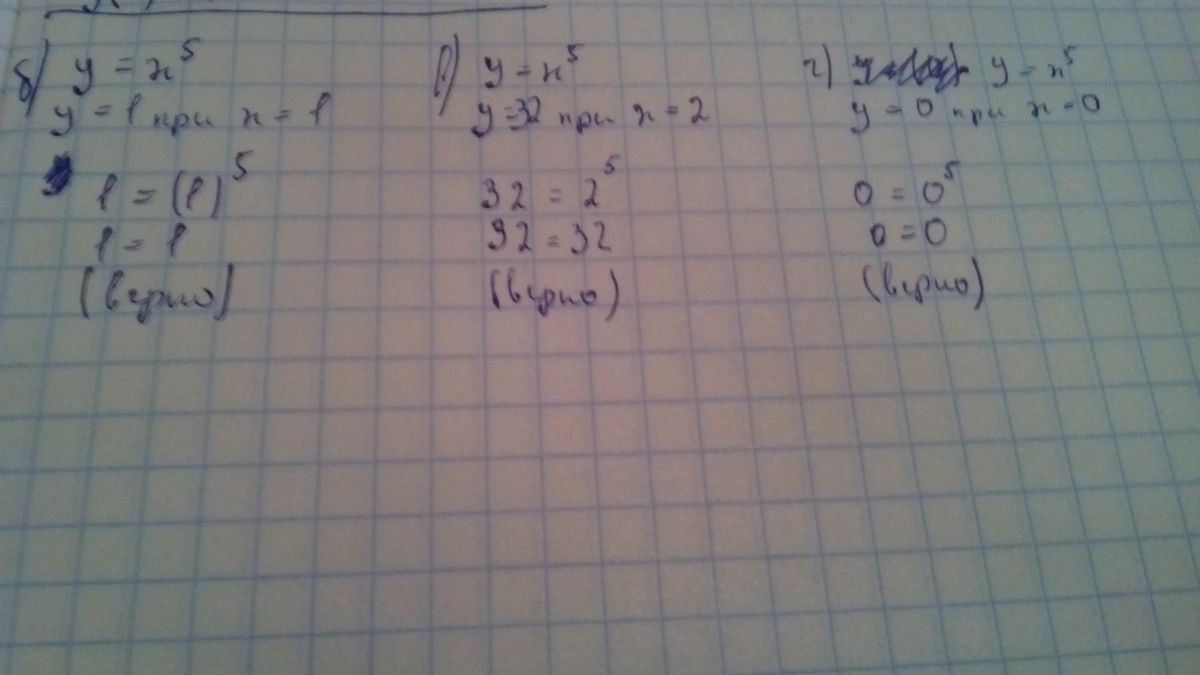 б) y = x⁵
y = 1 при x = 1
1 = (1)⁵
1 = 1
(верно)
в) y = x⁵
y = 32 при x = 2
32 = 2⁵
32 = 32
(верно)
г) y = x⁵
y = 0 при x = 0
0 = 0⁵
0 = 0
(верно)